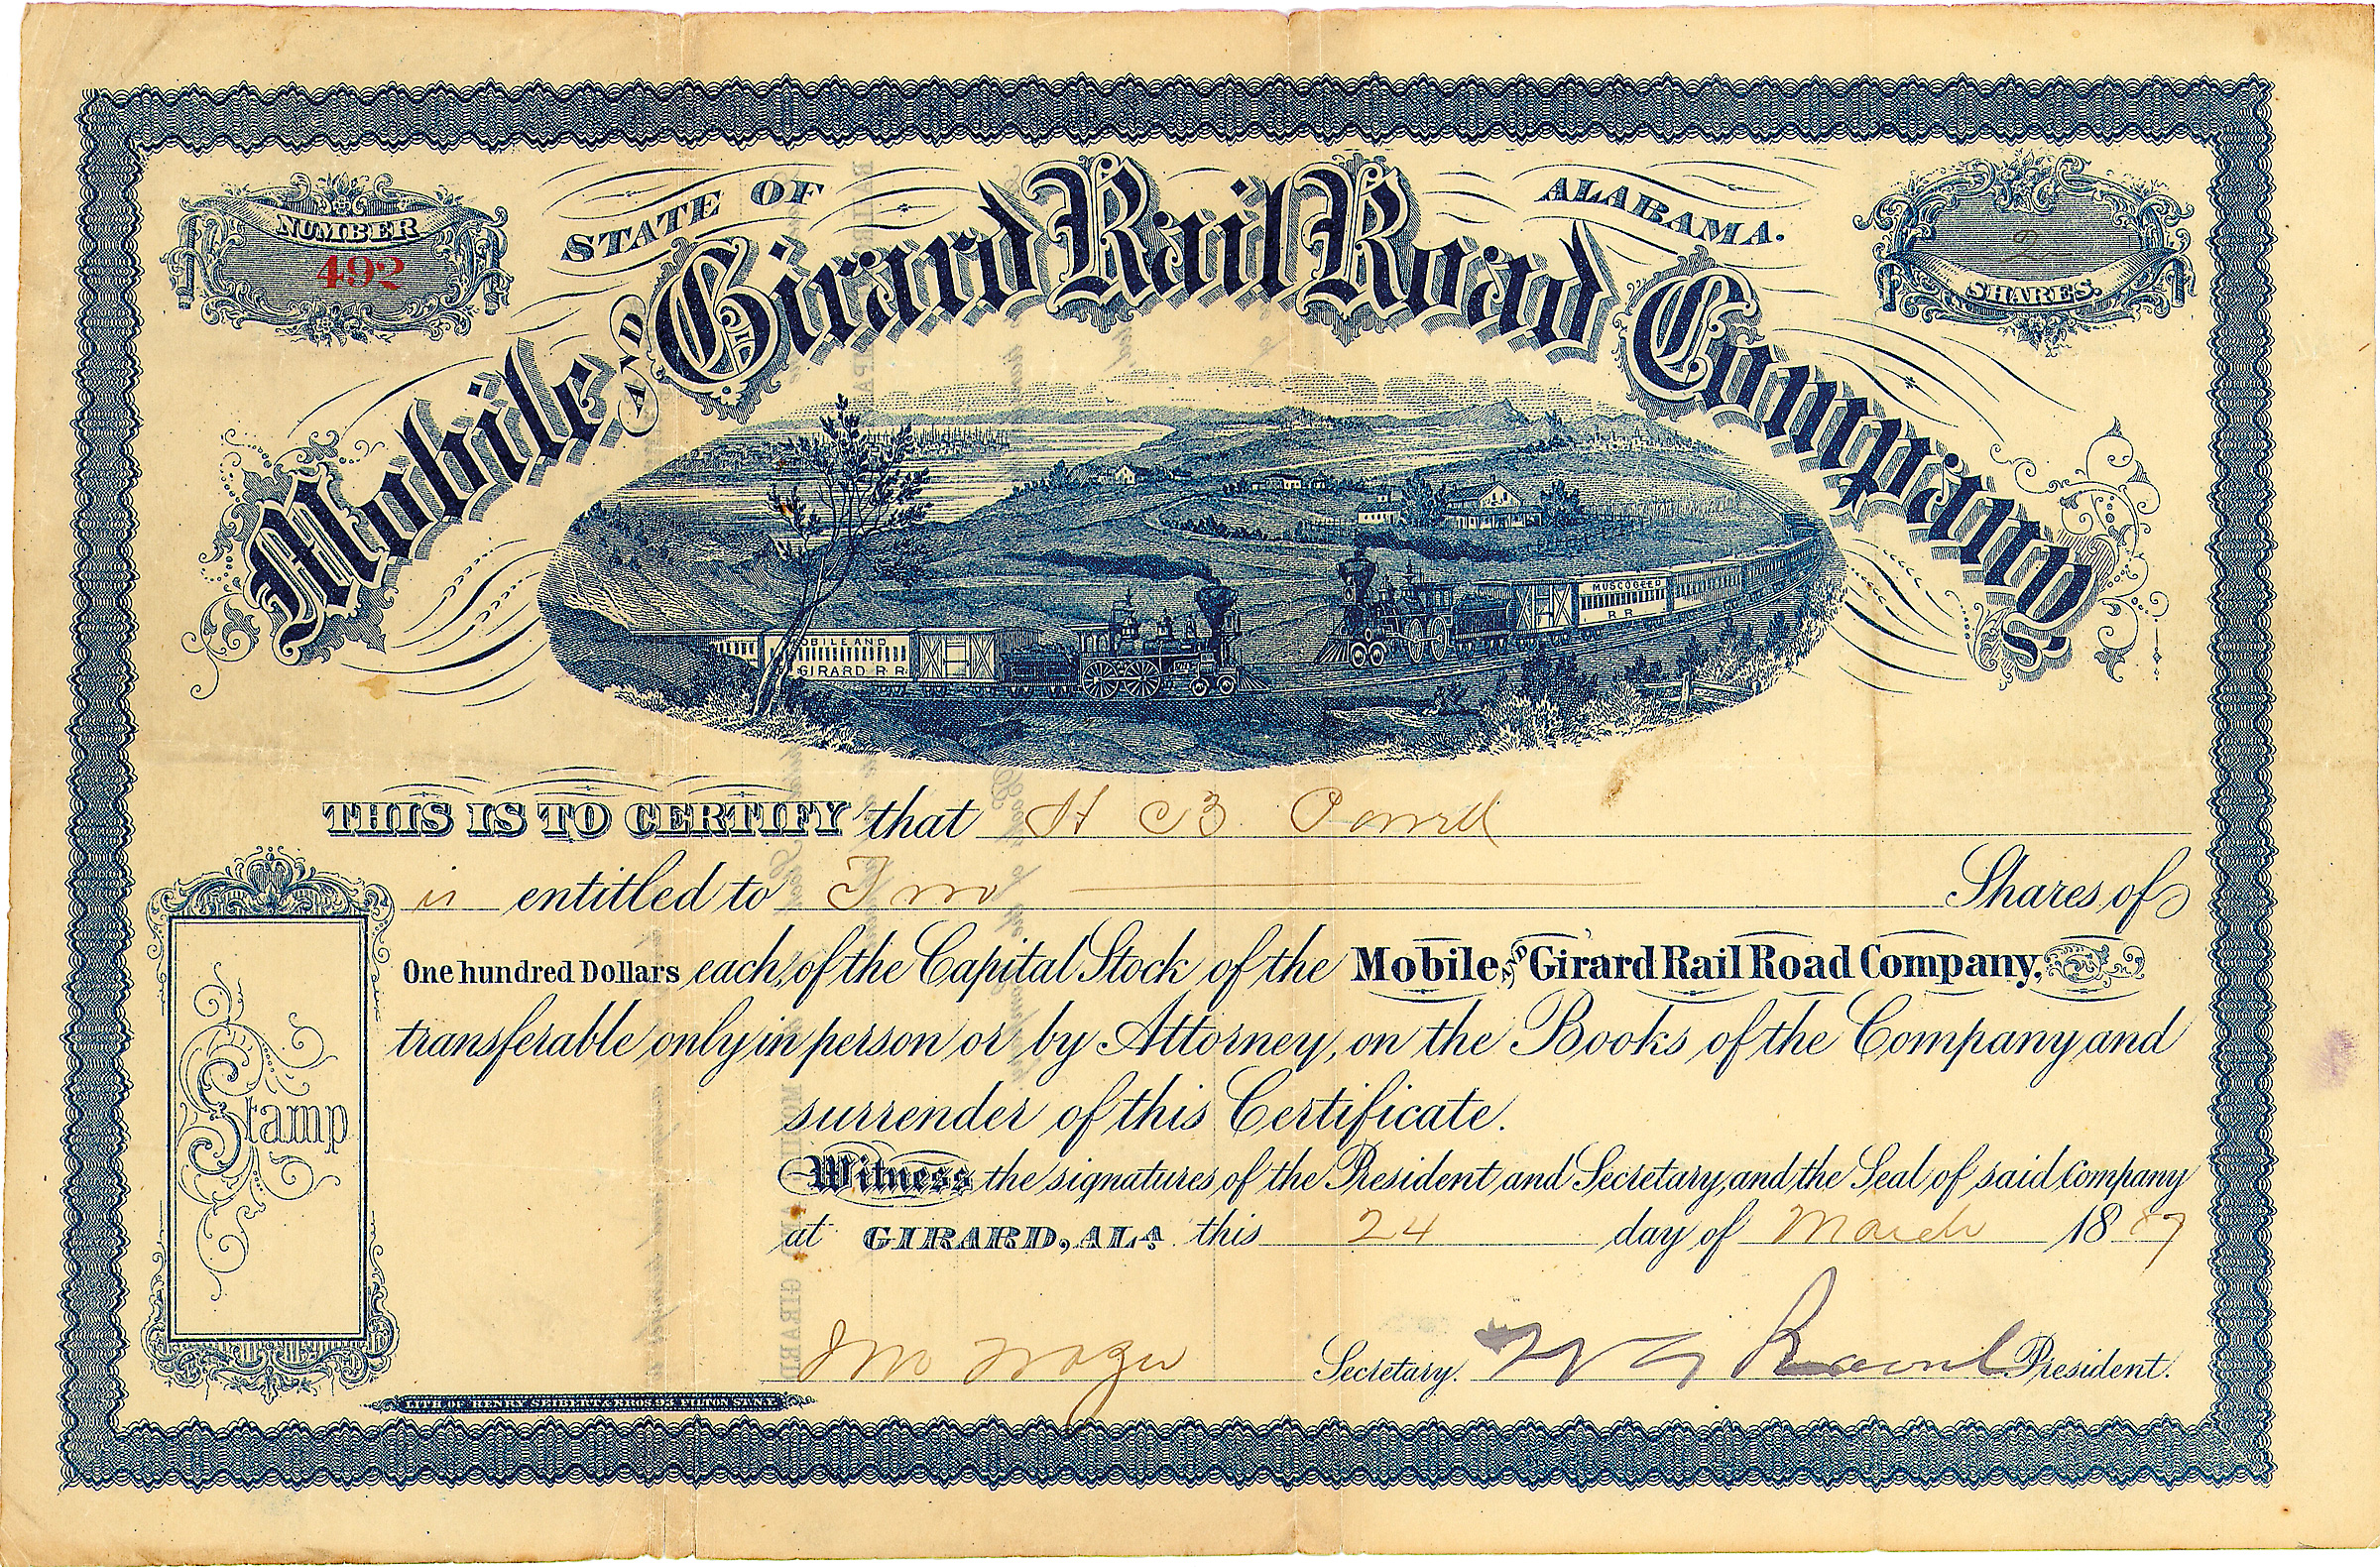 STATE OF ALABAMA.
NUMBER
492
2
SHARES.
Mobile AND Girard Rail Road Company
MOBILE AND
GIRARD R R
MUSCOGEED
R R
THIS IS TO CERTIFY that H C B Powell
is entitled to Two Shares of
One hundred Dollars each, of the Capital Stock of the Mobile AND Girard Rail Road Company,
transferable only in person or by Attorney, on the Books of the Company and
surrender of this Certificate.
Stamp
Witness the signatures of the President and Secretary, and the Seal of said Company
at GIRARD, ALA. this 24 day of March 1887
Jno Secretary. W G Raoul President.
LITH OF HENRY SEIBERT & BROS 93 FULTON ST. N.Y.